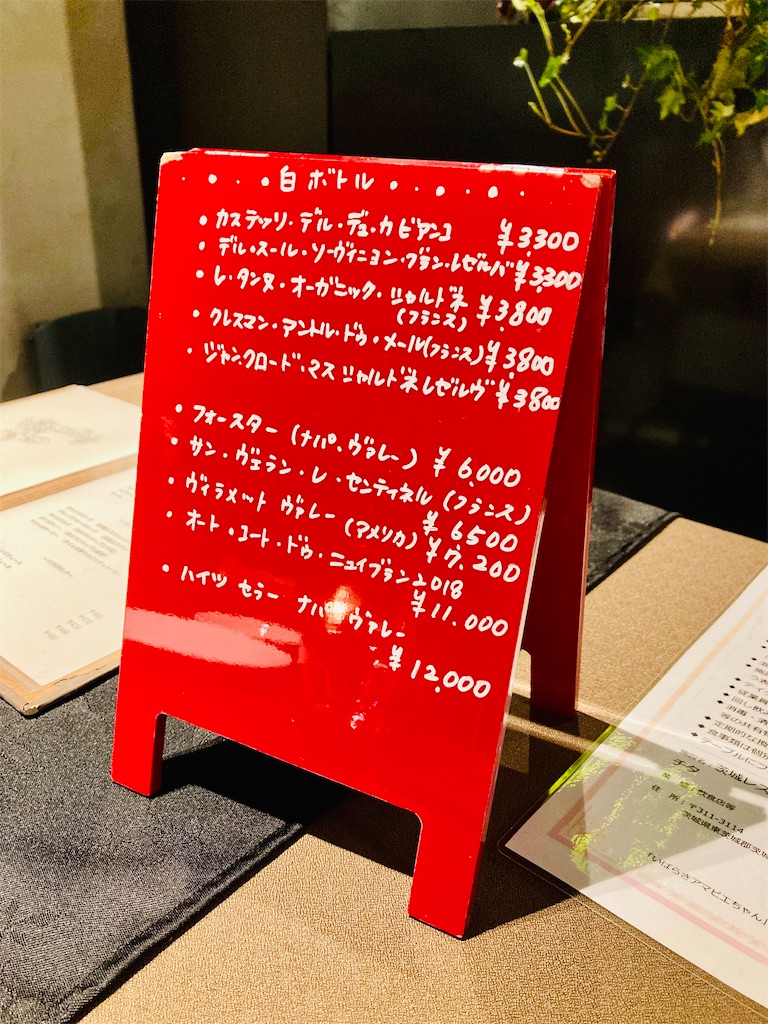 ・・・・白ボトル・・・・・
・カステッリ・デル・デュ・カ ビアンコ ¥3,300
・デル・スール・ソーヴィニヨン・ブラン・レゼルバ ¥3,300
・レ・タンヌ・オーガニック・シャルドネ
(フランス) ¥3,800
・クレスマン・アントル・ドゥ・メール(フランス) ¥3,800
・ジャン.クロード・マス シャルドネ レゼルヴ ¥3,800
・フォースター (ナパ・ヴァレー) ¥6,000
・サン・ヴェラン・レ・センティネル (フランス)
¥6500
・ヴィラメット ヴァレー (アメリカ) ¥7,200
・オート・コート・ドゥ・ニュイブラン2018
¥11,000
・ハイツ セラー ナパ・ヴァレー
¥12,000
従業員
回し飲
消毒・消
等の共有物
定期的な換
食事類は個別
テーブルにフ
茨城レス
チタ
飲食店等
住 所:〒311-3114
茨城県東茨城郡茨城
「いばらきアマビエちゃん」